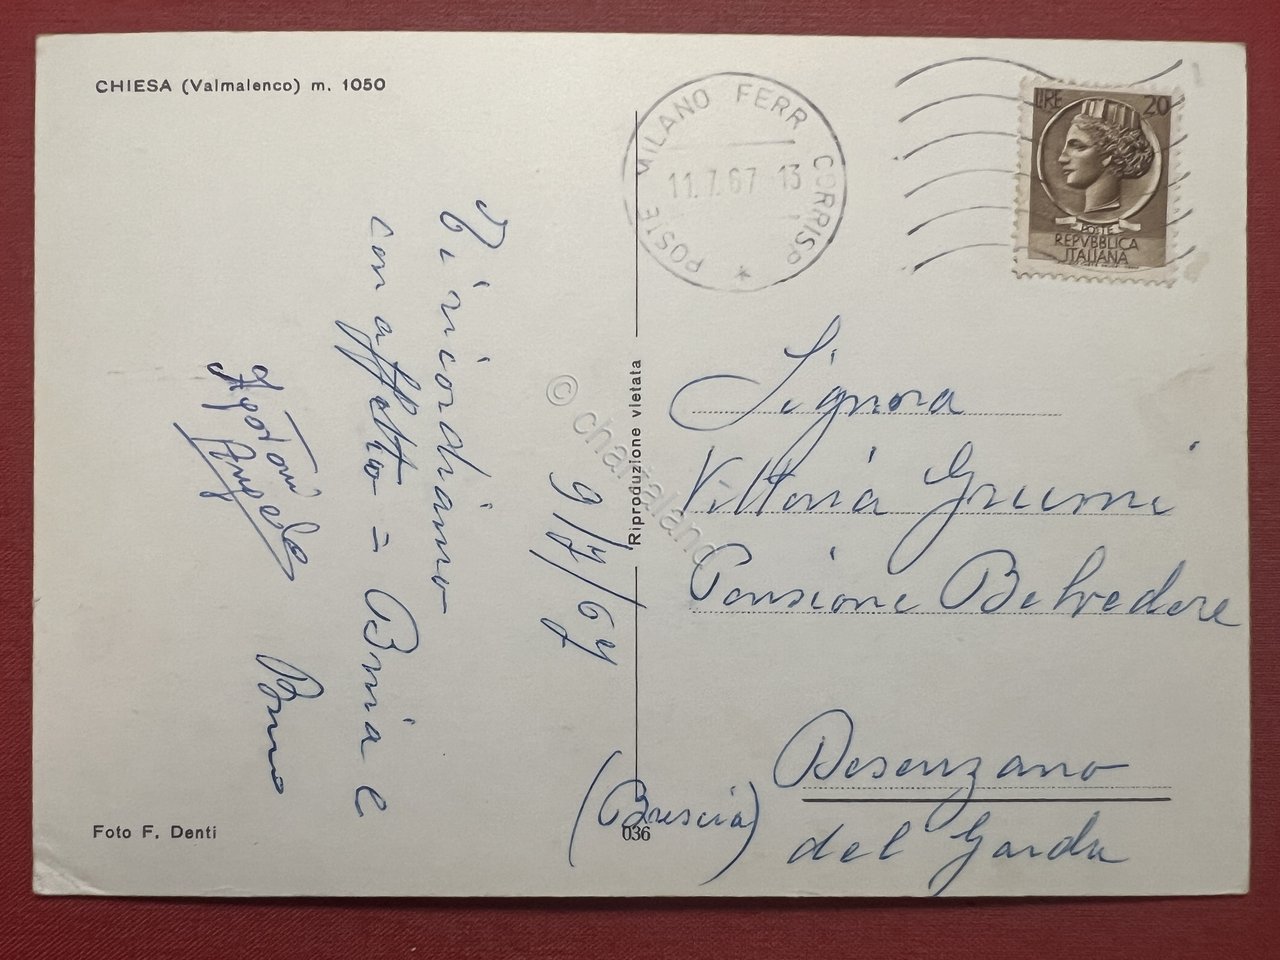 CHIESA (Valmalenco) m. 1050
POSTE MILANO FERR CORRISP
11.7.67 13
LIRE 20
POSTE
REPVBBLICA
ITALIANA
9/7/67
Ti ricordiamo
con affetto = Bruna e
Bruno
Agostoni
Angelo
Riproduzione vietata
© chartaland
Signora
Vittoria
Pensione Belvedere
Desenzano
del Garda
(Brescia)
Foto F. Denti
036